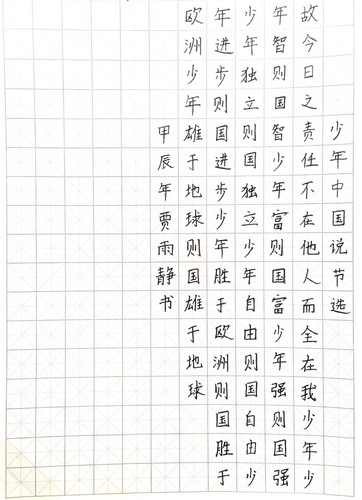 少年中国说节选
故今日之责任不在他人而全在我少年少
年智则国智少年富则国富少年强则国强
少年独立则国独立少年自由则国自由少
年进步则国进步少年胜于欧洲则国胜于
欧洲少年雄于地球则国雄于地球
甲辰年贾雨静书